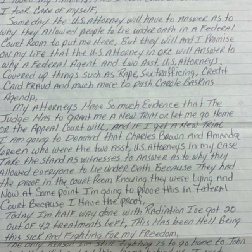 I take care of myself.
Someday the U.S. Attorney will have to answer as to
why they allowed people to lie under oath in a Federal
Court Room to put me here. But they will and I promise
on my life that the U.S. Attorney in OKC will answer to
why a Federal Agent and two past U.S. Attorneys
covered up things such as Rape, Sex trafficing, Credit
Card Fraud and much more to push Carole Baskins
Agenda.
My Attorneys have so much evidence that the
Judge has to grant me a New Trial or let me go home
or the Appeal Court will, and if I get a New Trial
I am going to demand that Charles Brown and Amanda
Green who were the two past U.S. Attorneys in my case
take the stand as witnesses to answer as to why they
allowed everyone to lie under oath because they had
the proof in the court room knowing they were lying and
now at some point I'm going to prove this in Federal
Court because I have the proof.
Today I'm half way done with Radiation I've got 20
out of 42 treatments left, this has been Hell being
this sick and fighting for my freedom,
is to go home to